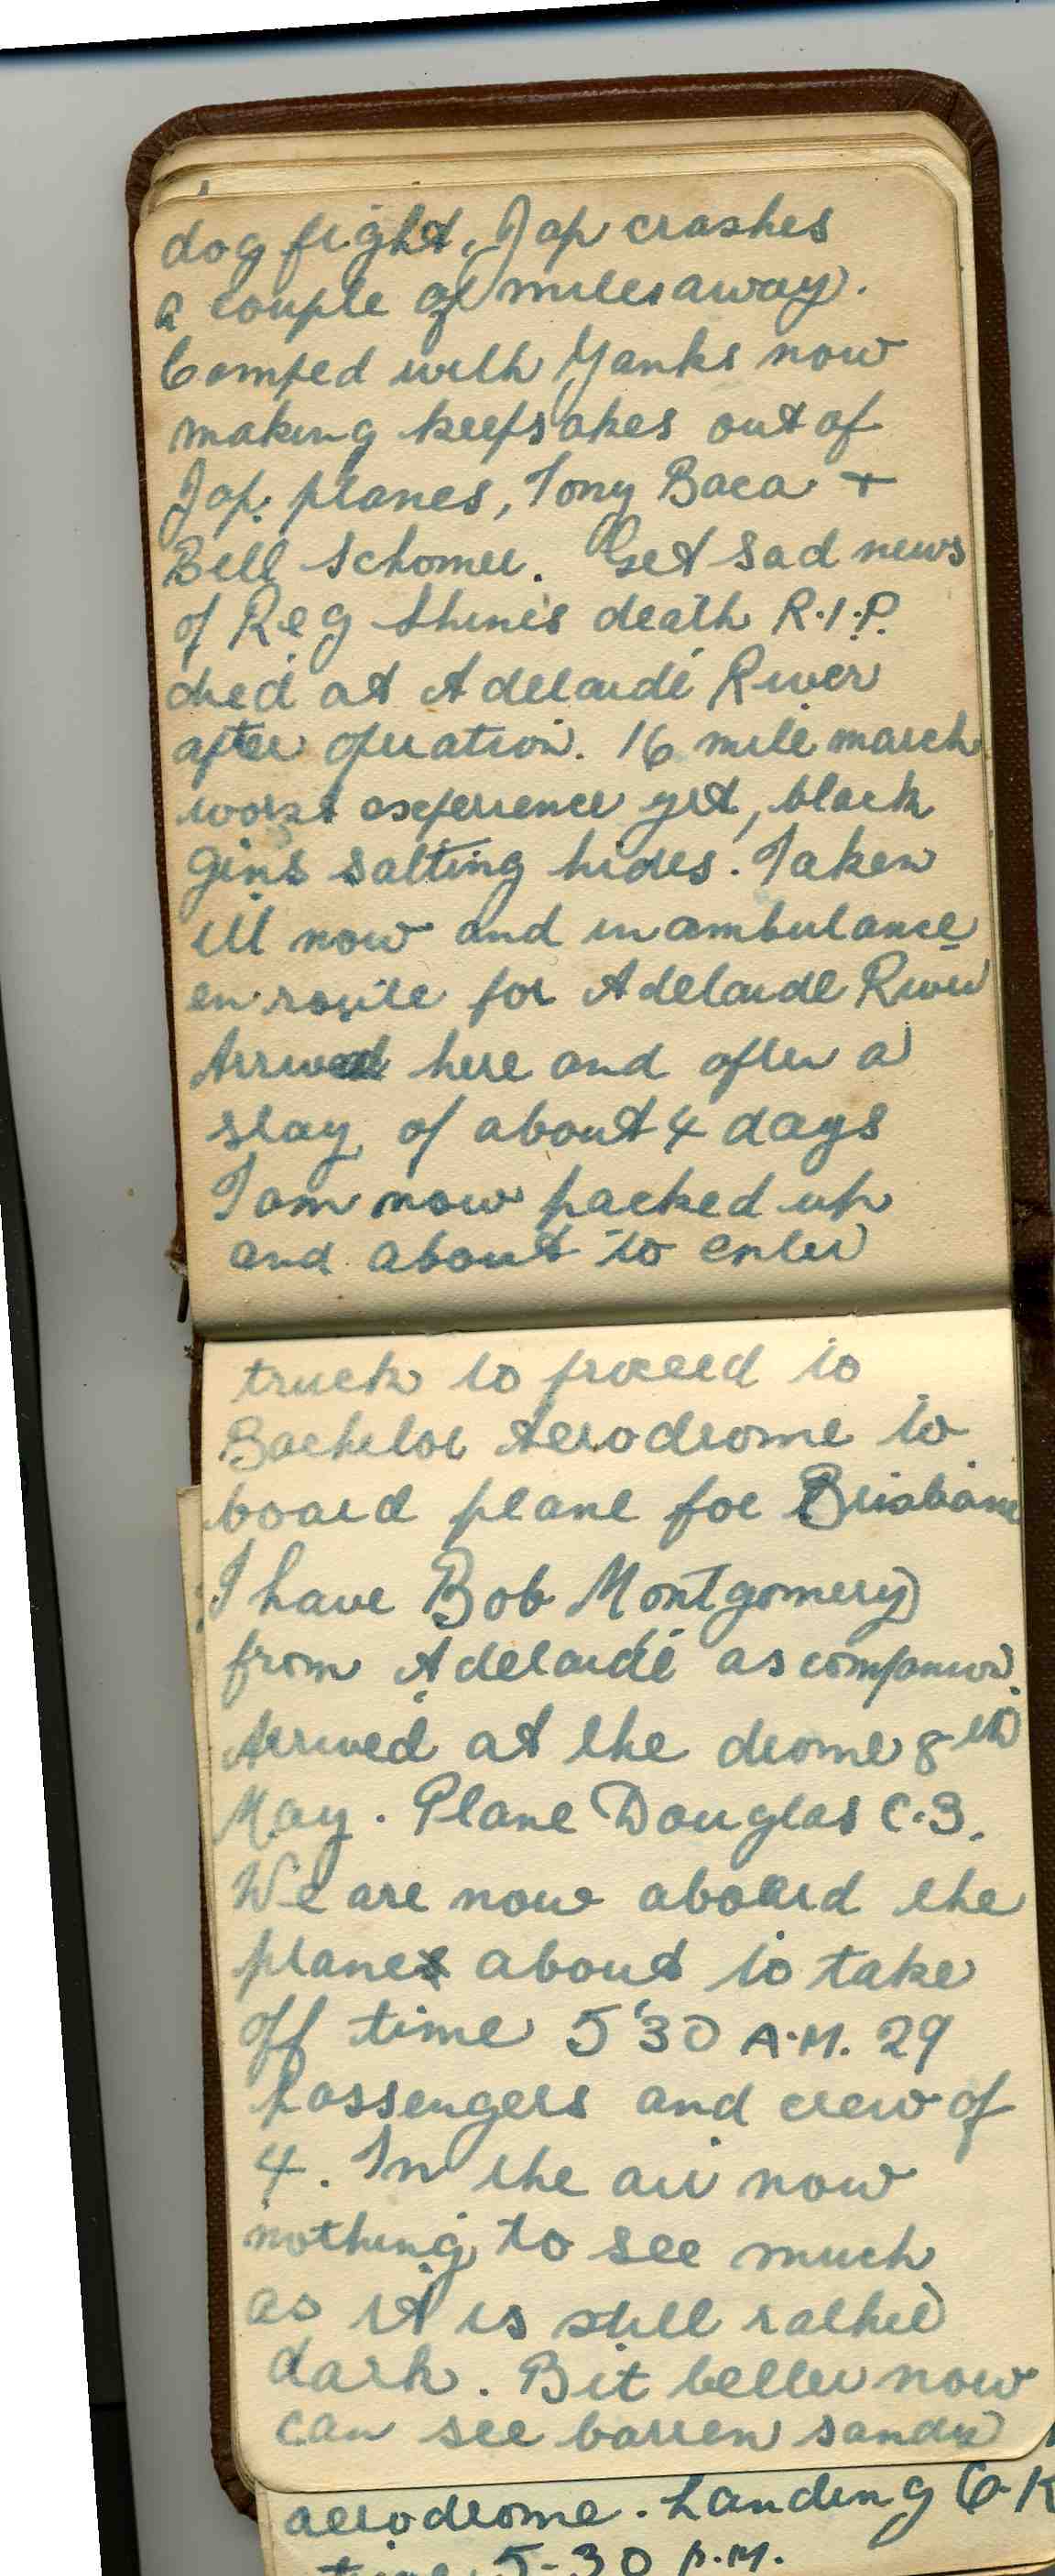 dog fight, Jap crashes
a couple of miles away.
Camped with Yanks now
making keepsakes out of
Jap. planes, Tony Baca +
Bill Schomer. Get sad news
of Reg Shine's death R.I.P.
died at Adelaide River
after operation. 16 mile march
worst experience yet, black
gins salting hides. Taken
ill now and in ambulance
en route for Adelaide River
Arrived here and after a
stay of about 4 days
I am now packed up
and about to enter
truck to proceed to
Bachelor Aerodrome to
board plane for Brisbane
I have Bob Montgomery
from Adelaide as companion.
Arrived at the drome 8th
May. Plane Douglas C.3.
We are now aboard the
plane about to take
off time 5'30 A.M. 29
Passengers and crew of
4. In the air now
nothing to see much
as it is still rather
dark. Bit better now
can see barren sandy
aerodrome. Landing O.K
time 5-30 P.M.